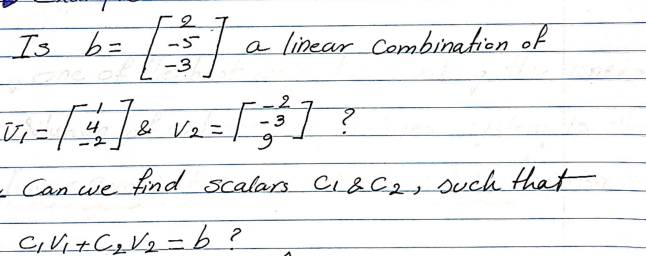 Is b = [2 -5 -3] a linear combination of
v₁ = [1 4 -2] & v₂ = [-2 -3 9] ?
Can we find scalars c₁ & c₂, such that
c₁v₁ + c₂v₂ = b ?